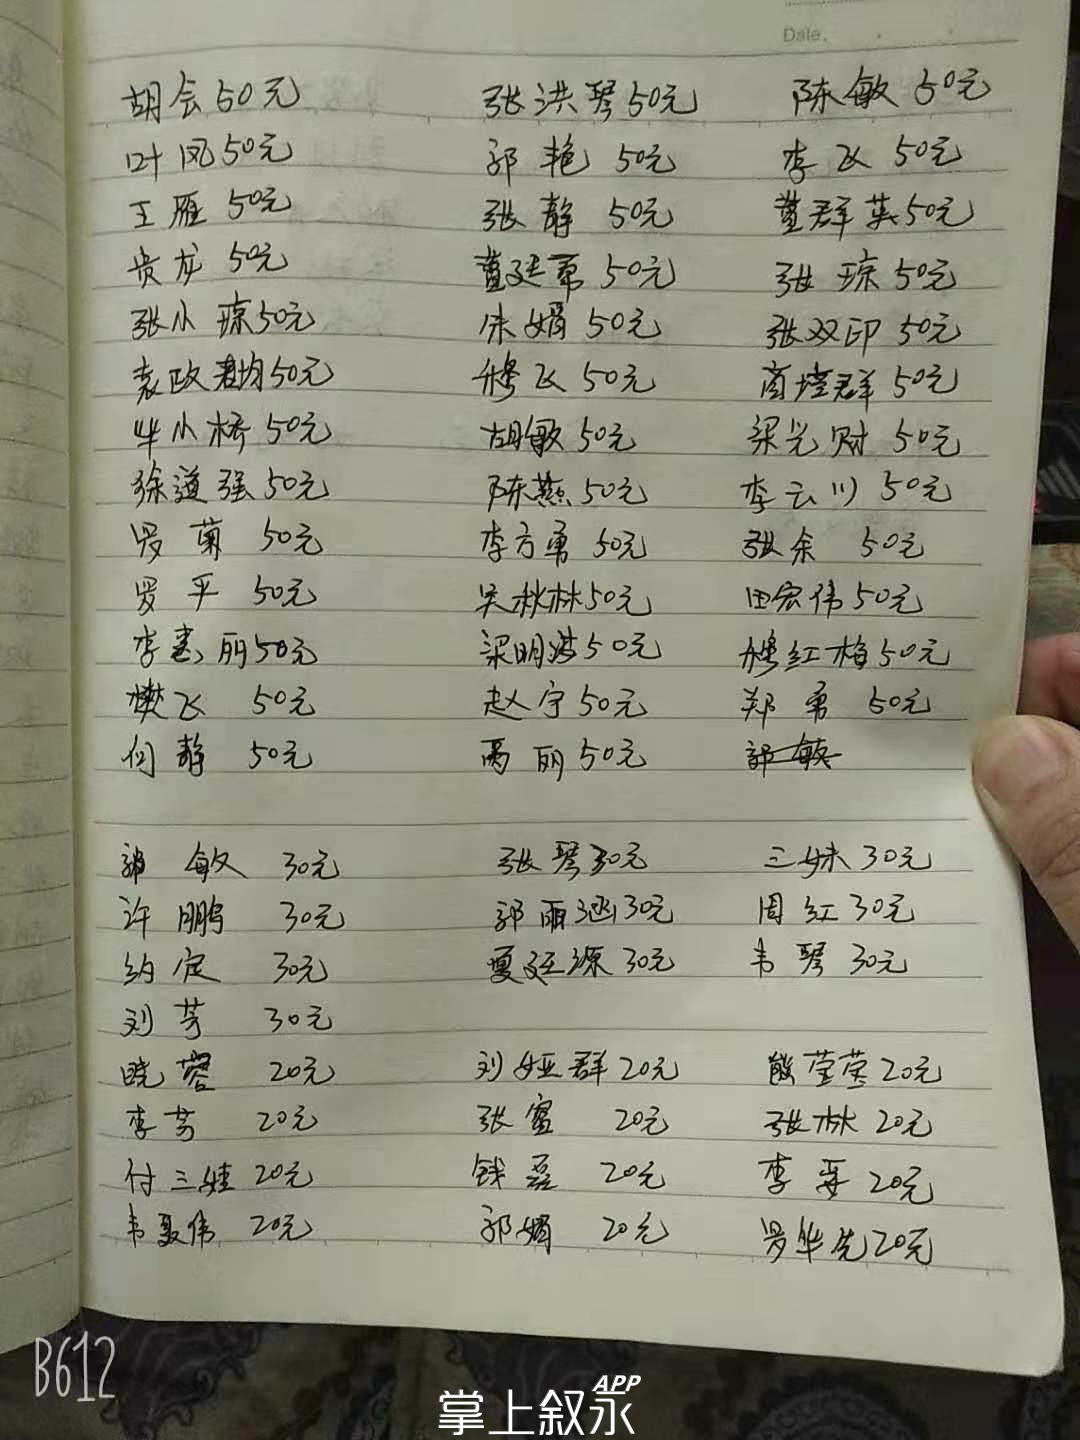 Date.
胡会50元 张洪琴50元 陈敏50元
叶凤50元 郭艳50元 李飞50元
王雁50元 张静50元 董群英50元
贵龙50元 50元 张琼50元
张小琼50元 朱娟50元 张双印50元
袁政50元 穆飞50元 商培群50元
华小桥50元 胡敏50元 梁光财50元
徐道强50元 陈燕50元 李云川50元
罗菊50元 李方勇50元 张余50元
罗平50元 吴秋林50元 田宏伟50元
李春丽50元 梁明波50元 穆红梅50元
樊飞50元 赵宇50元 郑勇50元
何静50元 高丽50元 郭敏
郭敏30元 张琴30元 三妹30元
许鹏30元 郭雨涵30元 周红30元
约定30元 夏廷源30元 韦琴30元
刘芳30元
晓蓉20元 刘娅群20元 熊莹莹20元
李芳20元 张蜜20元 张林20元
付三娃20元 钱磊20元 李平20元
韦聂伟20元 郭娟20元 罗华先20元
B612
掌上叙永APP